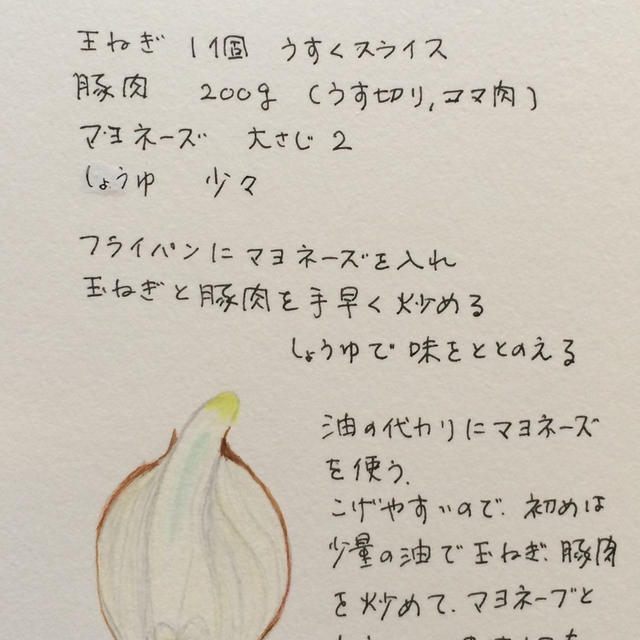 玉ねぎ 1個 うすくスライス
豚肉 200g (うす切り,コマ肉)
マヨネーズ 大さじ2
しょうゆ 少々
フライパンにマヨネーズを入れ
玉ねぎと豚肉を手早く炒める
しょうゆで味をととのえる
油の代わりにマヨネーズ
を使う.
こげやすいので、初めは
少量の油で玉ねぎ、豚肉
を炒めて、マヨネーズと